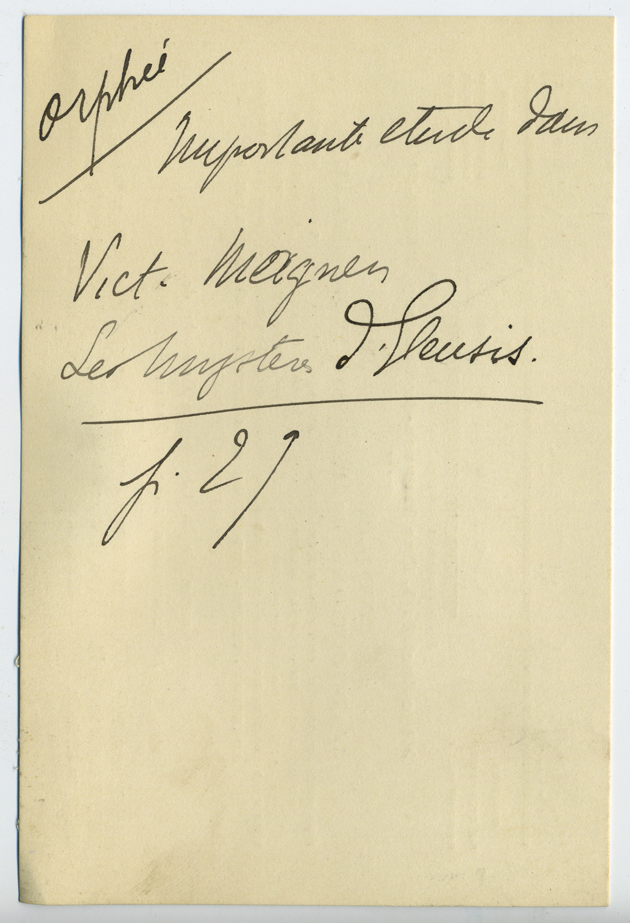 Orphée
Importante etude dans
Vict. Magnien
Les Mystères d'Eleusis.
p. 29